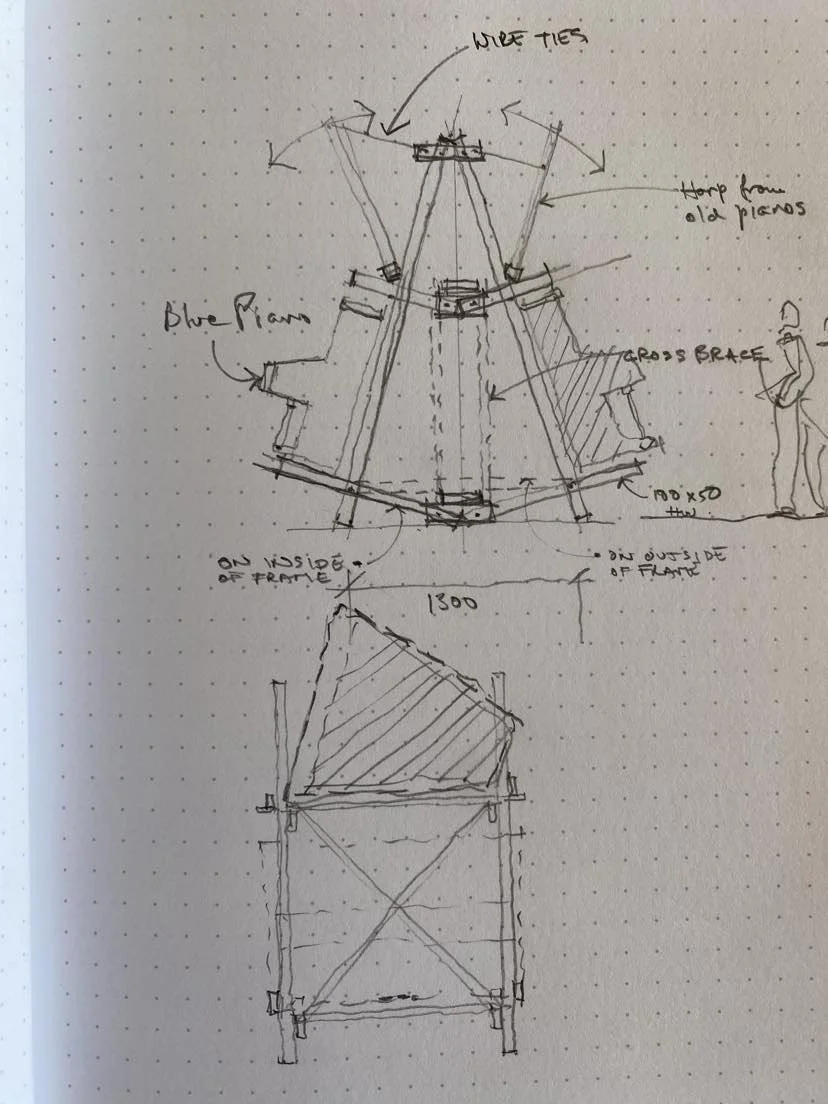 WIRE TIES
Harp from
old pianos
Blue Piano
CROSS BRACE
100 x 50
HW
ON INSIDE
OF FRAME
• ON OUTSIDE
OF FRAME
1300